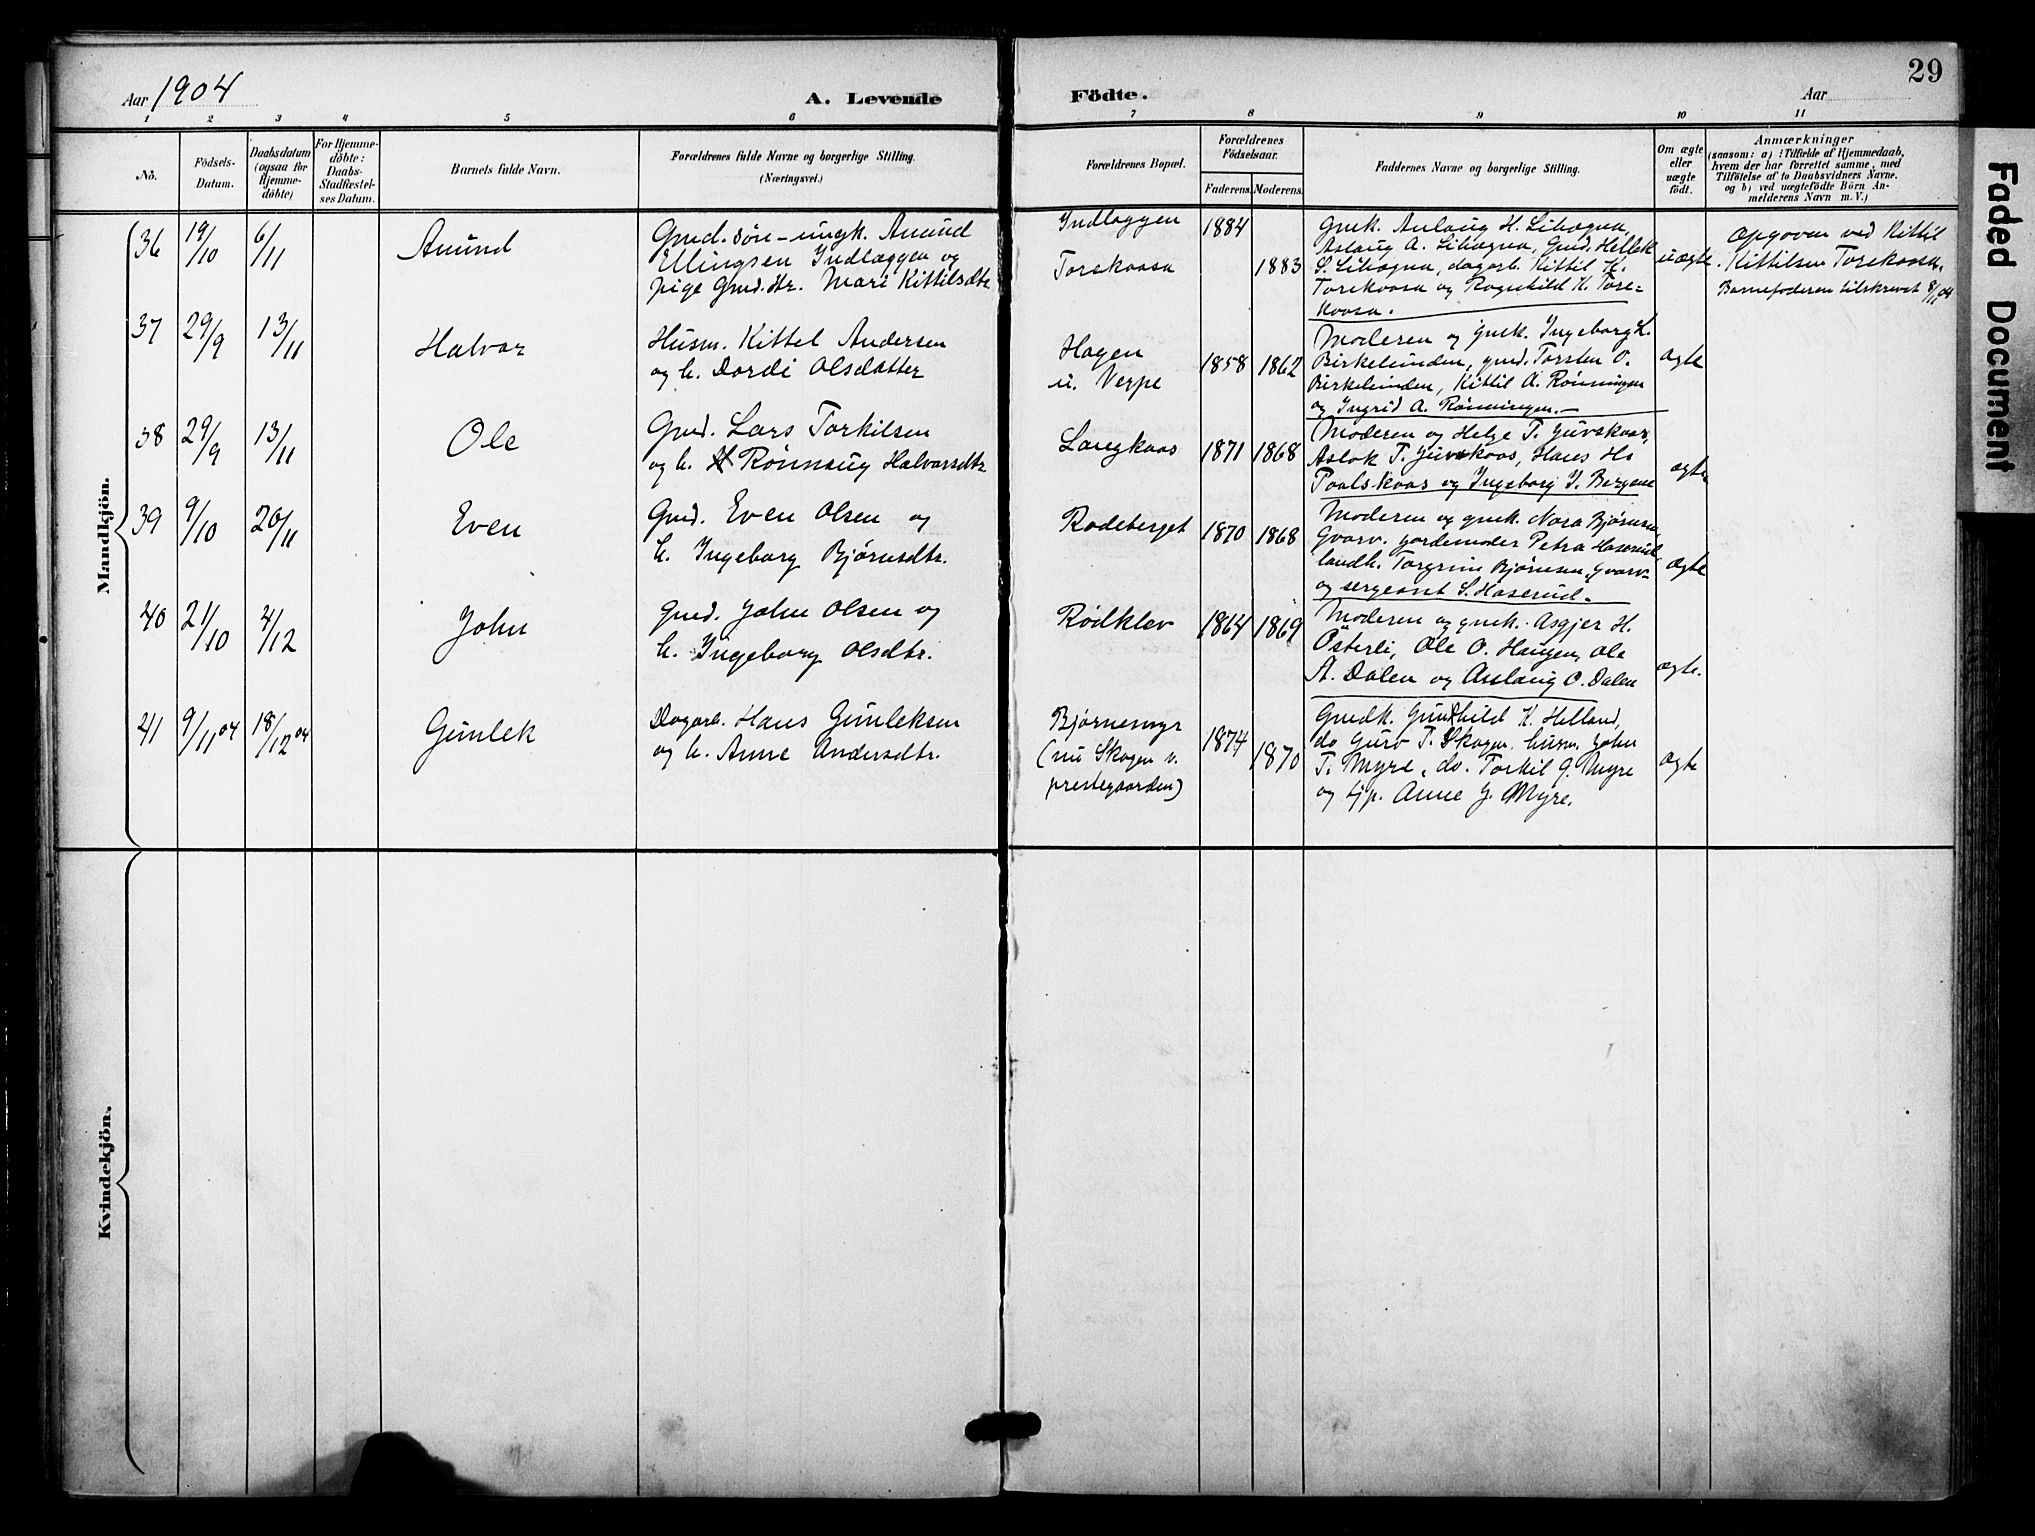 29
Aar 1904
A. Levende Födte.
Aar
1 2 3 4 5 6 7 8 9 10 11
No.
Födsels-Datum.
Daabsdatum (ogsaa for Hjemme-döbte)
For Hjemme-döbte: Daabs-Stadfæstel-ses Datum.
Barnets fulde Navn.
Forældrenes fulde Navne og borgerlige Stilling.
(Næringsvei.)
Forældrenes Bopæl.
Forældrenes Födselsaar.
Faderens. Moderens.
Faddernes Navne og borgerlige Stilling.
Om ægte eller uægte födt.
Anmærkninger
(saasom: a) i Tilfælde af Hjemmedaab,
hvem der har forrettet samme, med
Tilföielse af to Daabsvidners Navne,
og b) ved uægtefödte Börn An-
melderens Navn m. V.)
Mandkjön.
36 19/10 6/11 Amund
Gmd. søn - ungk. Amund
Ellingsen Indlæggen og
pige Gmd.dtr. Mari Kittilsdtr.
Indlæggen 1884
Torekaasa 1883
Gmk. Anlaug H. Libægna,
Aslaug A. Libægna, Gmd. Hellek
S. Libægna, dagarb. Kittil K.
Torekaasa og Ragnhild K. Tore-
kaasa.
uægte
Opgaven ved Kittil
Kittilsen Torekaasa.
Barnefaderen tilskrevet 8/11 04
37 29/9 13/11 Halvor
Husm. Kittel Andersen
og h. Dordi Olsdatter
Hagen
u. Verpe
1858 1862
Moderen og gmk. Ingeborg L.
Birkelunden, gmd. Torsten O.
Birkelunden, Kittil A. Rønningen
og Ingrid A. Rønningen.
ægte
38 29/9 13/11 Ole
Gmd. Lars Torkilsen
og h. Rønnaug Halvorsdtr.
Langkaas 1871 1868
Moderen og Helge T. Juvskaas,
Aslak T. Juvskaas, Hans Hs
Paalskaas og Ingeborg J. Bergene
ægte
39 9/10 20/11 Even
Gmd. Even Olsen og
h. Ingeborg Bjørnsdtr.
Radeberget 1870 1868
Moderen og gmk. Nora Bjørnsen,
Gvarv. jordemoder Petra Haserud,
landh. Torgrim Bjørnsen, Gvarv
og sergeant S. Haserud.
ægte
40 21/10 4/12 John
Gmd. John Olsen og
h. Ingeborg Olsdtr.
Rødklev 1864 1869
Moderen og gmk. Asgjer H.
Österli, Ole O. Haugen, Ole
A. Dalen og Aslaug O. Dalen
ægte.
41 9/11 04 18/12 04 Gunlek
Dagarb. Hans Gunleksen
og h. Anne Andersdtr.
Bjørnemyr
(nu Skogen v.
prestegaarden)
1874 1870
Gmdk. Gunhild K. Helland,
do Guro T. Skogen, husm. John
T. Myre, do. Torkil G. Myre
og tjp. Anne J. Myre.
ægte
Kvindekjön.
Faded Document